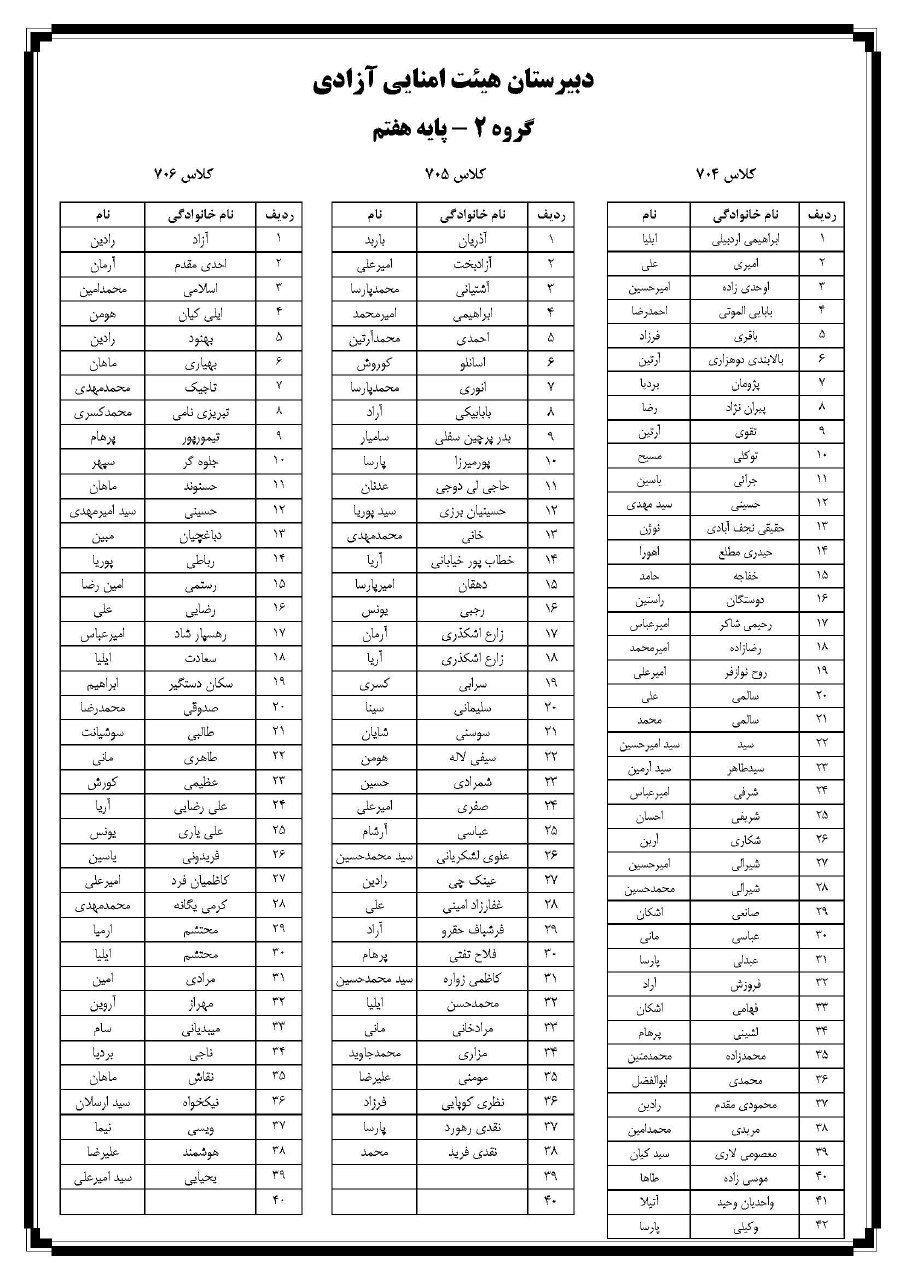 دبیرستان هیئت امنایی آزادی
گروه ۲ - پایه هفتم
کلاس ۷۰۴
ردیف نام خانوادگی نام
۱ ابراهیمی اردبیلی ایلیا
۲ امیری علی
۳ اوحدی زاده امیرحسین
۴ بابایی الموتی احمدرضا
۵ باقری فرزاد
۶ بالابندی دوهزاری آرتین
۷ پژومان بردیا
۸ پیران نژاد رضا
۹ تقوی آرتین
۱۰ توکلی مسیح
۱۱ جرائی یاسین
۱۲ حسینی سید مهدی
۱۳ حقیقی نجف آبادی نوژن
۱۴ حیدری مطلع اهورا
۱۵ خفاجه حامد
۱۶ دوستگان راستین
۱۷ رحیمی شاکر امیرعباس
۱۸ رضازاده امیرمحمد
۱۹ روح نوازفر امیرعلی
۲۰ سالمی علی
۲۱ سالمی محمد
۲۲ سید سید امیرحسین
۲۳ سیدطاهر سید آرمین
۲۴ شرفی امیرعباس
۲۵ شریفی احسان
۲۶ شکاری آرین
۲۷ شیرالی امیرحسین
۲۸ شیرالی محمدحسین
۲۹ صانعی اشکان
۳۰ عباسی مانی
۳۱ عبدلی پارسا
۳۲ فروزش آراد
۳۳ فهامی اشکان
۳۴ لشینی پرهام
۳۵ محمدزاده محمدمتین
۳۶ محمدی ابوالفضل
۳۷ محمودی مقدم رادین
۳۸ مریدی محمدامین
۳۹ معصومی لاری سید کیان
۴۰ موسی زاده طاها
۴۱ واحدیان وحید آتیلا
۴۲ وکیلی پارسا
کلاس ۷۰۵
ردیف نام خانوادگی نام
۱ آذریان باربد
۲ آزادبخت امیرعلی
۳ آشتیانی محمدپارسا
۴ ابراهیمی امیرمحمد
۵ احمدی محمدآرتین
۶ اسانلو کوروش
۷ انوری محمدپارسا
۸ بابابیکی آراد
۹ بدر پرچین سفلی سامیار
۱۰ پورمیرزا پارسا
۱۱ حاجی لی دوجی عدنان
۱۲ حسینیان برزی سید پوریا
۱۳ خانی محمدمهدی
۱۴ خطاب پور خیابانی آریا
۱۵ دهقان امیرپارسا
۱۶ رجبی یونس
۱۷ زارع اشکذری آرمان
۱۸ زارع اشکذری آریا
۱۹ سرابی کسری
۲۰ سلیمانی سینا
۲۱ سوسنی شایان
۲۲ سیفی لاله هومن
۲۳ شمرادی حسین
۲۴ صفری امیرعلی
۲۵ عباسی آرشام
۲۶ علوی لشکریانی سید محمدحسین
۲۷ عینک چی رادین
۲۸ غفارزاد امینی علی
۲۹ فرشباف حقرو آراد
۳۰ فلاح تفتی پرهام
۳۱ کاظمی زواره سید محمدحسین
۳۲ محمدحسن ایلیا
۳۳ مرادخانی مانی
۳۴ مزاری محمدجاوید
۳۵ مومنی علیرضا
۳۶ نظری کوپایی فرزاد
۳۷ نقدی رهورد پارسا
۳۸ نقدی فرید محمد
۳۹
۴۰
کلاس ۷۰۶
ردیف نام خانوادگی نام
۱ آزاد رادین
۲ احدی مقدم آرمان
۳ اسلامی محمدامین
۴ ایلی کیان هومن
۵ بهنود رادین
۶ بهیاری ماهان
۷ تاجیک محمدمهدی
۸ تبریزی نامی محمدکسری
۹ تیمورپور پرهام
۱۰ جلوه گر سپهر
۱۱ حسنوند ماهان
۱۲ حسینی سید امیرمهدی
۱۳ دباغچیان مبین
۱۴ رباطی پوریا
۱۵ رستمی امین رضا
۱۶ رضایی علی
۱۷ رهسپار شاد امیرعباس
۱۸ سعادت ایلیا
۱۹ سکان دستگیر ابراهیم
۲۰ صدوقی محمدرضا
۲۱ طالبی سوشیانت
۲۲ طاهری مانی
۲۳ عظیمی کورش
۲۴ علی رضایی آریا
۲۵ علی یاری یونس
۲۶ فریدونی یاسین
۲۷ کاظمیان فرد امیرعلی
۲۸ کرمی یگانه محمدمهدی
۲۹ محتشم ارمیا
۳۰ محتشم ایلیا
۳۱ مرادی امین
۳۲ مهراز آروین
۳۳ میبدیانی سام
۳۴ ناجی بردیا
۳۵ نقاش ماهان
۳۶ نیکخواه سید ارسلان
۳۷ ویسی نیما
۳۸ هوشمند علیرضا
۳۹ یحیایی سید امیرعلی
۴۰